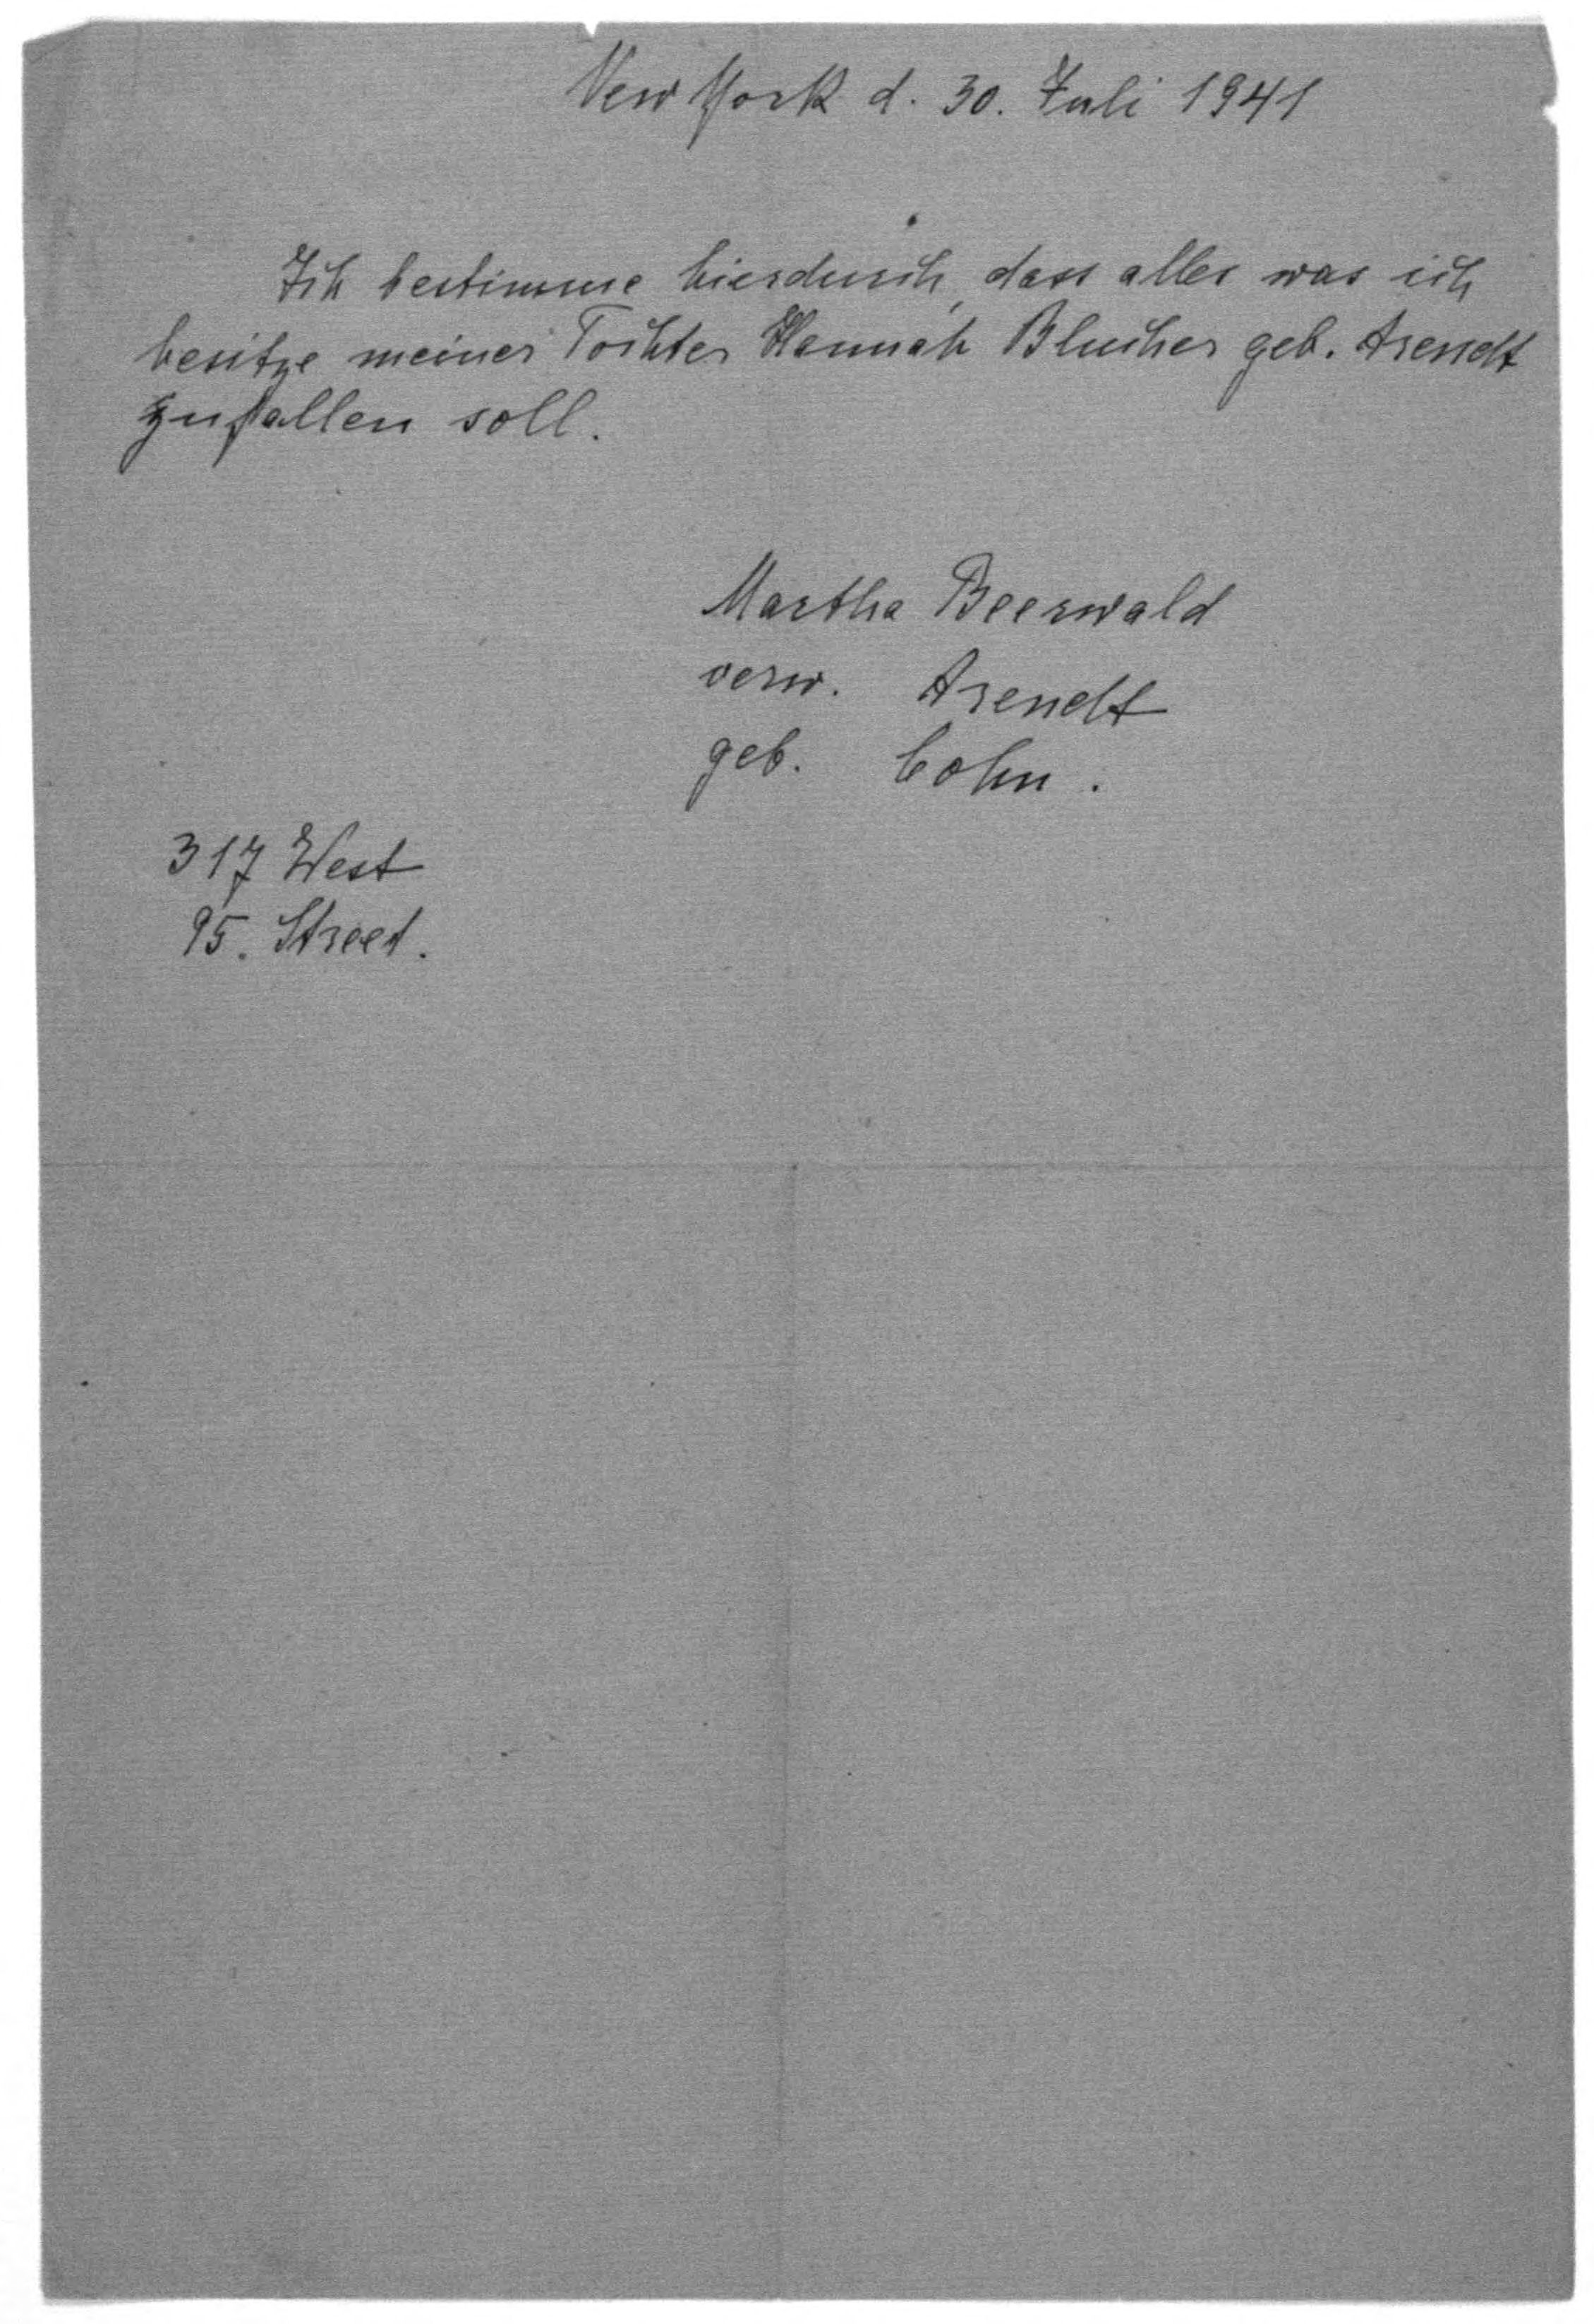 New York d. 30. Juli 1941
Ich bestimme hierdurch, dass alles was ich
besitze meiner Tochter Hannah Blucher geb. Arendt
zufallen soll.
Martha Beerwald
verw. Arendt
geb. Cohn.
317 West
95. Street.